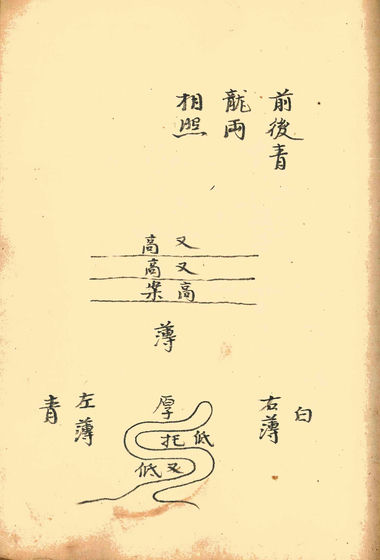 前後青
龍兩
相照
又高
又高
高案
薄
白
右薄
厚
低托
又低
左薄
青